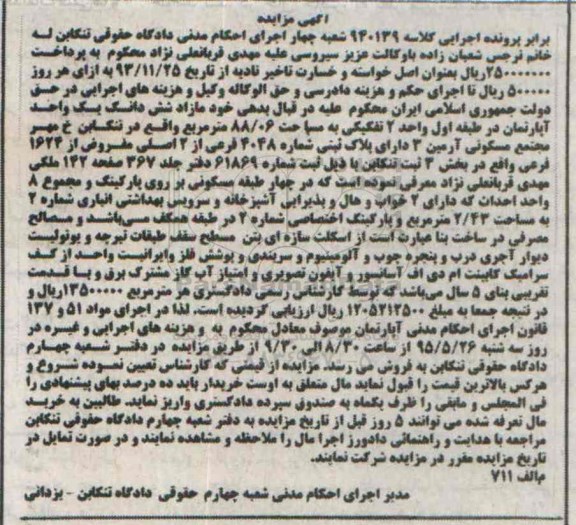 آگهی مزایده
برابر پرونده اجرایی کلاسه ۹۴۰۱۳۹ شعبه چهار اجرای احکام مدنی دادگاه حقوقی تنکابن له
خانم نرجس شعبان زاده باوکالت عزیز سیروسی علیه مهدی قربانعلی نژاد محکوم به پرداخت
۲۵۰۰۰۰۰۰۰ریال بعنوان اصل خواسته و خسارت تاخیر تادیه از تاریخ ۹۳/۱۱/۲۵ به ازای هر روز
۵۰۰۰۰۰ ریال تا اجرای حکم و هزینه دادرسی و حق الوکاله وکیل و هزینه های اجرایی در حق
دولت جمهوری اسلامی ایران محکوم علیه در قبال بدهی خود مازاد شش دانگ یک واحد
آپارتمان در طبقه اول واحد ۲ تفکیکی به مساحت ۸۸/۰۶ مترمربع واقع در تنکابن خ مهر
مجتمع مسکونی آرمین ۳ دارای پلاک ثبتی شماره ۴۰۴۸ فرعی از ۲ اصلی مفروض از ۱۶۲۴
فرعی واقع در بخش ۳ ثبت تنکابن با ذیل ثبت شماره ۶۱۸۶۹ دفتر جلد ۳۶۷ صفحه ۱۴۲ ملکی
مهدی قربانعلی نژاد معرفی نموده است که در چهار طبقه مسکونی بر روی پارکینگ و مجموع ۸
واحد احداث که دارای ۲ خواب و هال و پذیرایی آشپزخانه و سرویس بهداشتی انباری شماره ۲
به مساحت ۲/۴۳ مترمربع و پارکینگ اختصاصی شماره ۲ در طبقه همکف می‌باشد و مصالح
مصرفی در ساخت بنا عبارت است از اسکلت سازه ای بتن مسطح سقف طبقات تیرچه و یونولیت
دیوار آجری درب و پنجره چوب و آلومینیوم و سربندی و پوشش فلز وایرانیت واحد از کف
سرامیک کابینت ام دی اف آسانسور و آیفون تصویری و امتیاز آب گاز مشترک برق و با قدمت
تقریبی بنای ۵ سال می‌باشد که توسط کارشناس رسمی دادگستری هر مترمربع ۱۳۵۰۰۰۰۰ریال و
در نتیجه جمعا به مبلغ ۱۲۰۵۲۱۳۵۰۰ ریال ارزیابی گردیده است. لذا در اجرای مواد ۵۱ و ۱۳۷
قانون اجرای احکام مدنی آپارتمان موصوف معادل محکوم به و هزینه های اجرایی و غیره در
روز سه شنبه ۹۵/۵/۲۶ از ساعت ۸/۳۰ الی ۹/۳۰ از طریق مزایده در دفتر شعبه چهارم
دادگاه حقوقی تنکابن به فروش می رسد. مزایده از قیمتی که کارشناس تعیین نموده شروع و
هرکس بالاترین قیمت را قبول نماید مال متعلق به اوست خریدار باید ده درصد بهای پیشنهادی را
فی المجلس و مابقی را ظرف یکماه به صندوق سپرده دادگستری واریز نماید. طالبین به خرید
مال تعرفه شده می توانند ۵ روز قبل از تاریخ مزایده به دفتر شعبه چهارم دادگاه حقوقی تنکابن
مراجعه با هدایت و راهنمائی دادورز اجرا مال را ملاحظه و مشاهده نمایند و در صورت تمایل در
تاریخ مزایده مقرر در مزایده شرکت نمایند.
م‌الف ۷۱۱
مدیر اجرای احکام مدنی شعبه چهارم حقوقی دادگاه تنکابن - یزدانی